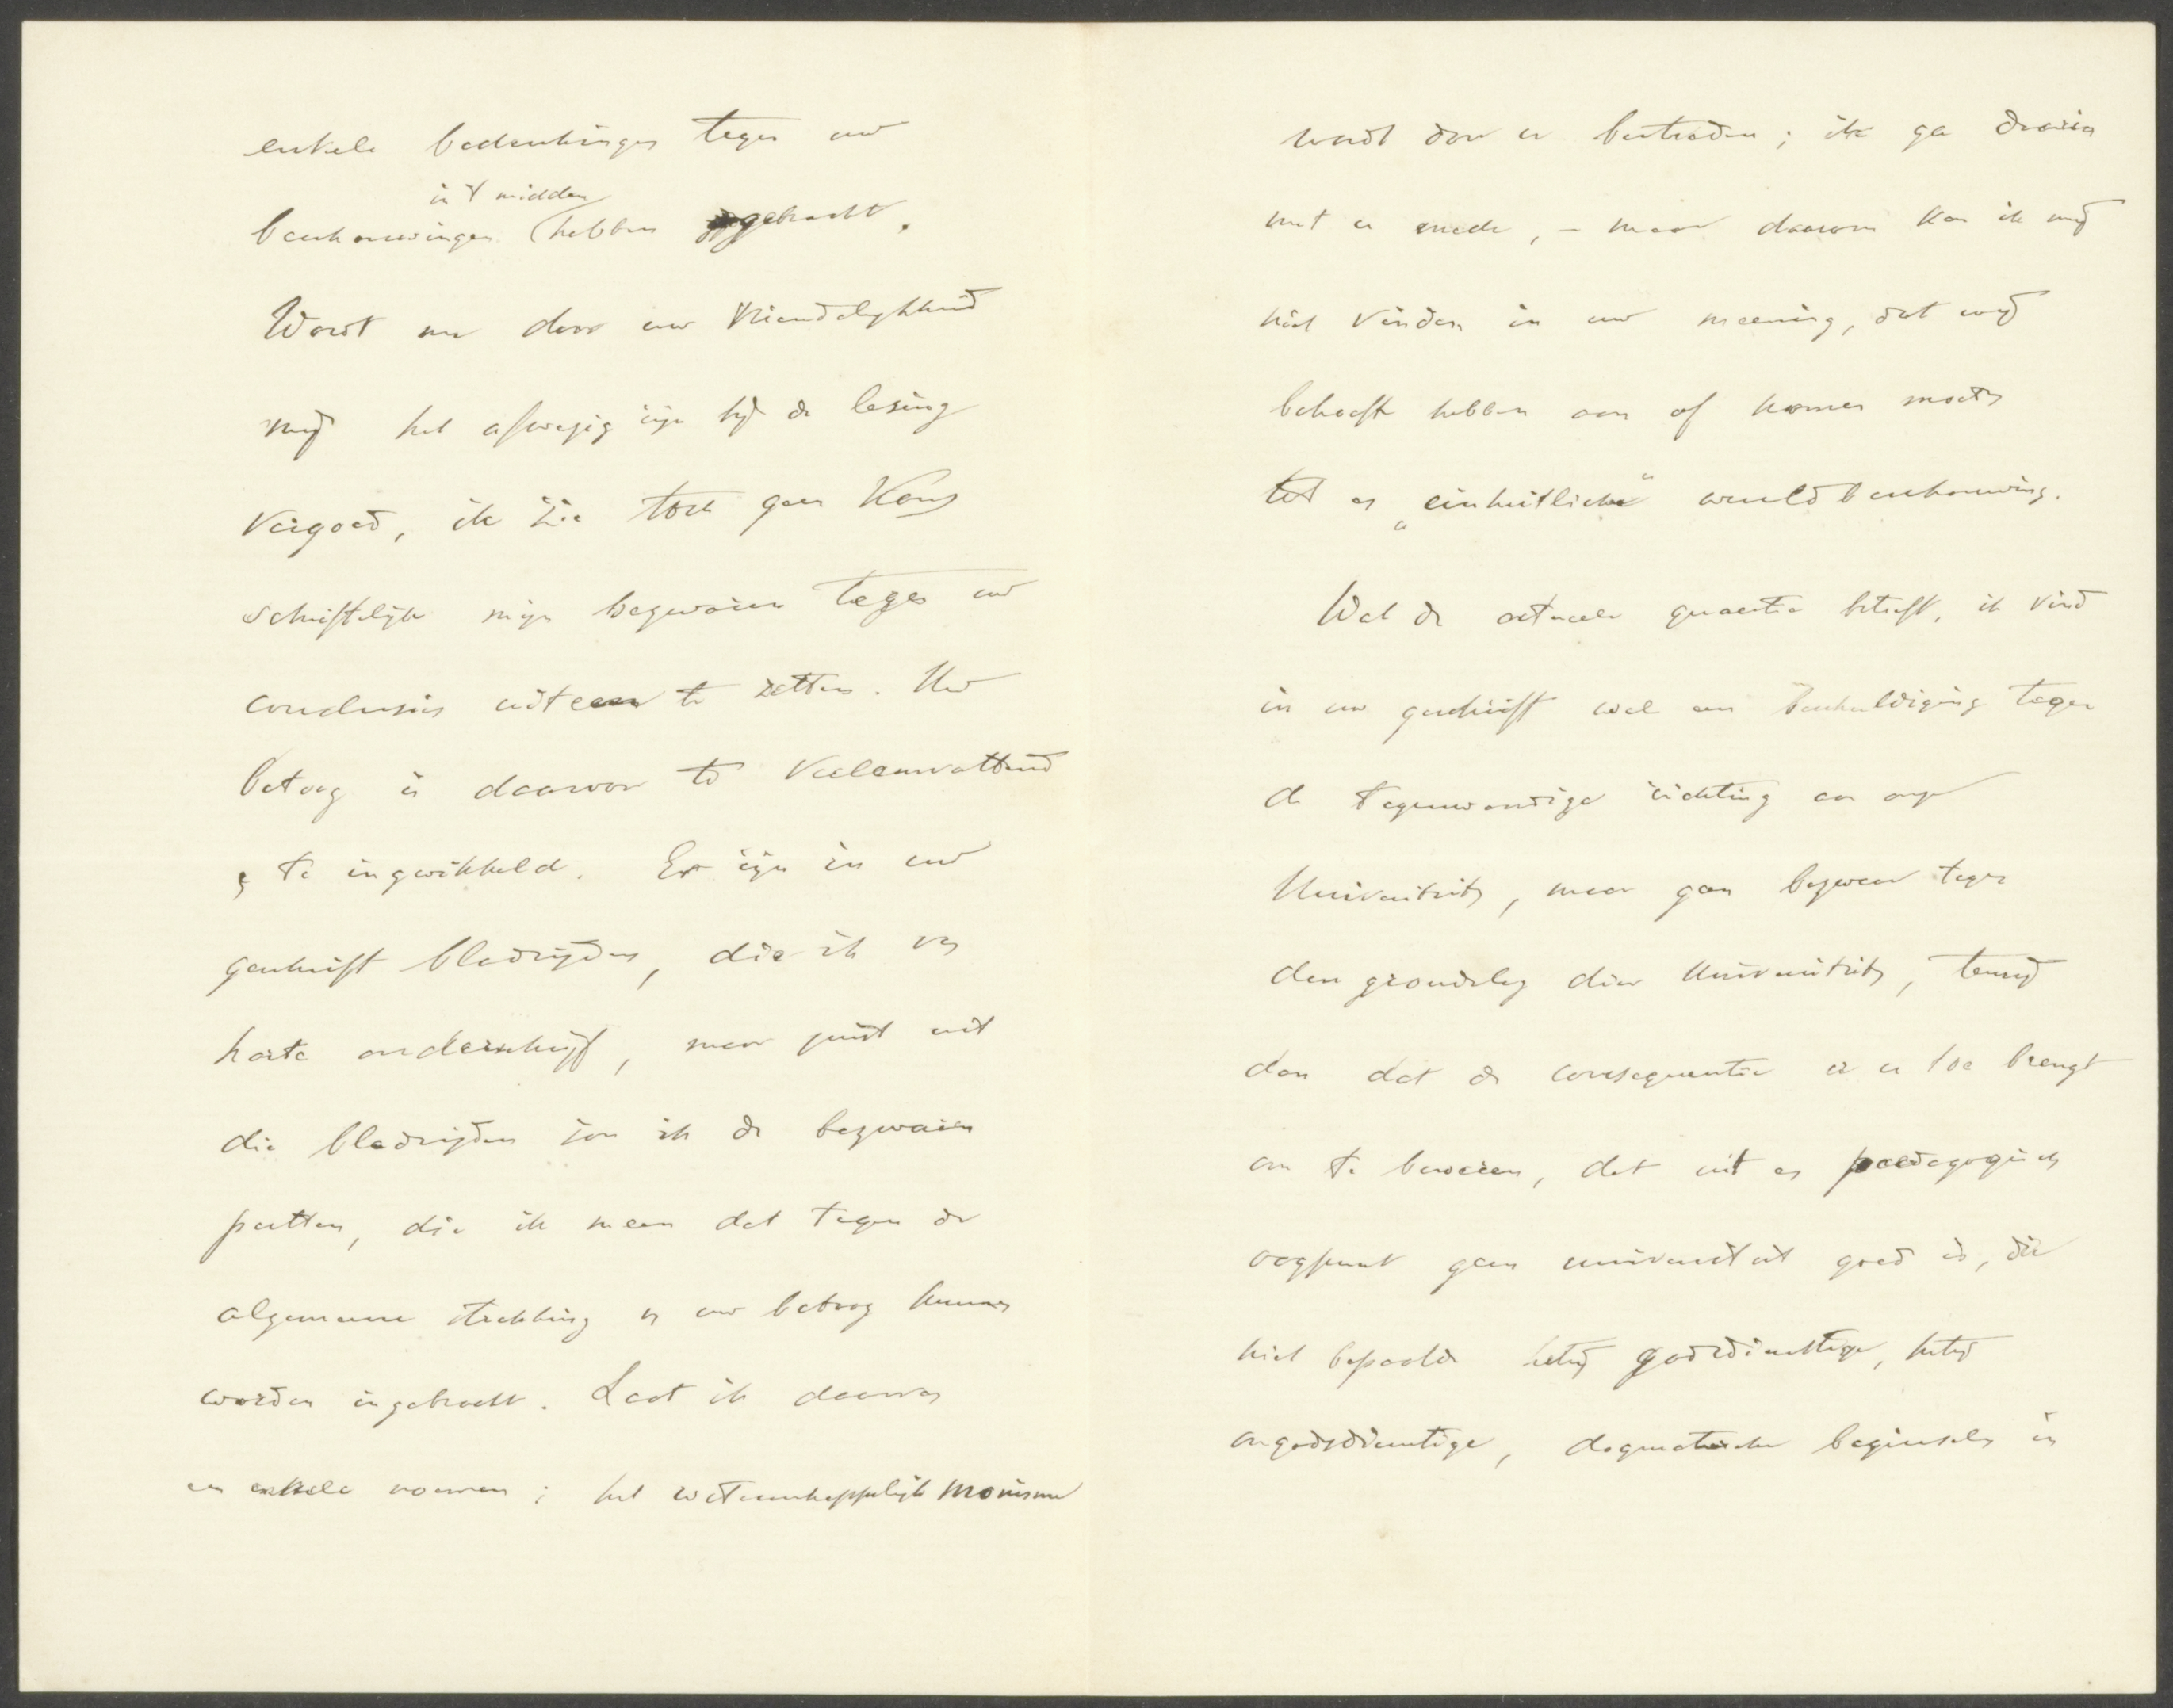 enkele bedenkingen tegen uw
in 't midden
beschouwingen hebben gebracht.
Wordt nu door uw vriendelijkheid
mij het afwezig zijn bij de lezing
vergoed, ik zie toch geen kans
schriftelijk mijn bezwaren tegen uw
conclusies uiteen te zetten. Uw
betoog is daarvoor te veelomvattend
& te ingewikkeld. Er zijn in uw
geschrift bladzijden, die ik van
harte onderschrijf, maar juist uit
die bladzijden zou ik de bezwaren
putten, die ik meen dat tegen de
algemeene strekking van uw betoog kunnen
worden ingebracht. Laat ik daarvan
een enkele noemen; het wetenschappelijk monisme
wordt door u bestreden; ik ga daarin
met u mede, – maar daarom kan ik mij
niet vinden in uw meening, dat wij
behoefte hebben aan of komen moeten
tot een „einheitliche" wereldbeschouwing.
Wat de actueele quaestie betreft, ik vind
in uw geschrift wel een beschuldiging tegen
de tegenwoordige richting aan onze
Universiteiten, maar geen bezwaar tegen
den grondslag dier Universiteiten, tenzij
dan dat de consequentie u er toe brengt
om te beweren, dat uit een paedagogisch
oogpunt geen universiteit goed is, die
niet bepaalde hetzij godsdienstige, hetzij
ongodsdienstige, dogmatische beginselen in